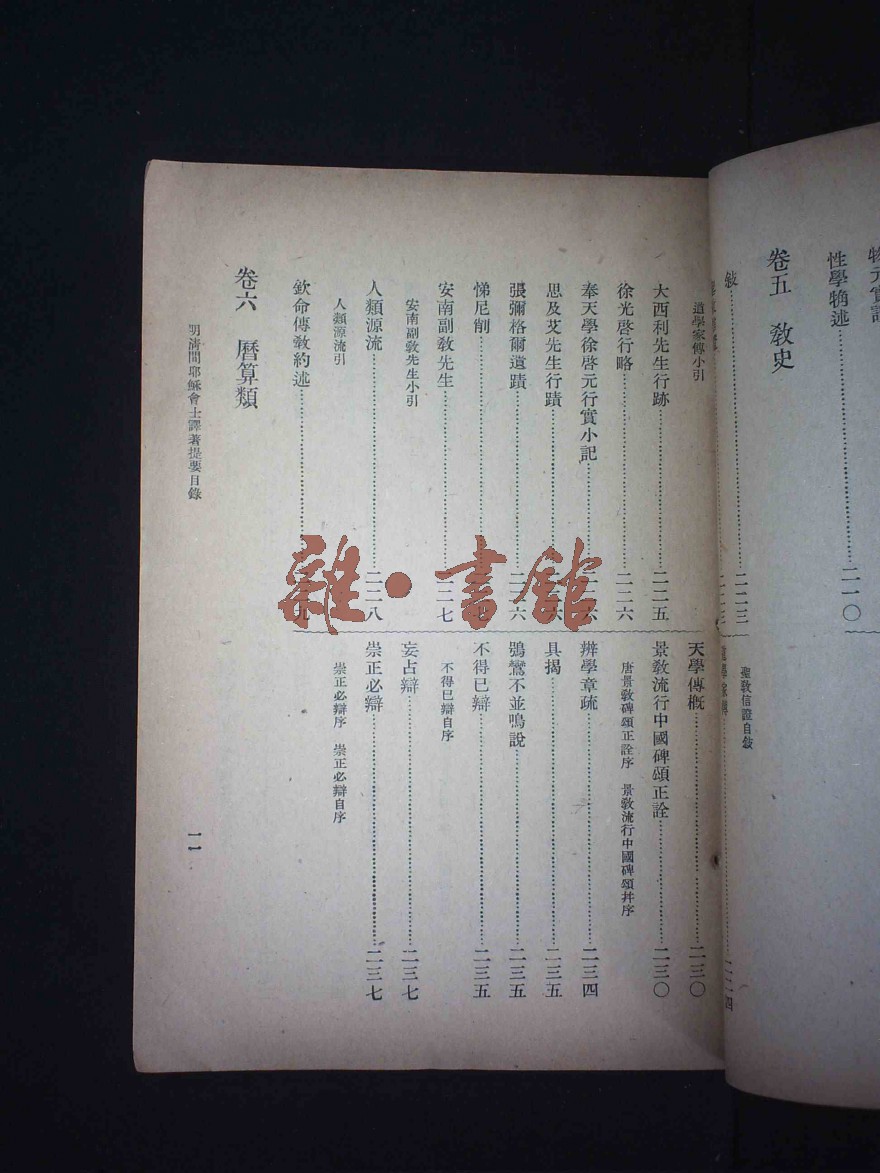 性學觕述……二一〇
卷五　敎史
敍……二二三
聖敎信證自敍
道學家傳小引
大西利先生行跡……二二五
徐光啓行略……二二六
奉天學徐啓元行實小記
思及艾先生行蹟
張彌格爾遺蹟……二二六
悌尼削
安南副敎先生……二二七
安南副敎先生小引
人類源流……二二八
人類源流引
欽命傳敎約述
天學傳槪……二三〇
景敎流行中國碑頌正詮……二三〇
唐景敎碑頌正詮序　景敎流行中國碑頌幷序
辨學章疏……二三四
具揭……二三五
鴞鸞不並鳴說……二三五
不得已辯……二三五
不得已辯自序
妄占辯……二三七
崇正必辯……二三七
崇正必辯序　崇正必辯自序
卷六　曆算類
明淸間耶穌會士譯著提要目錄
一一
雜·書館